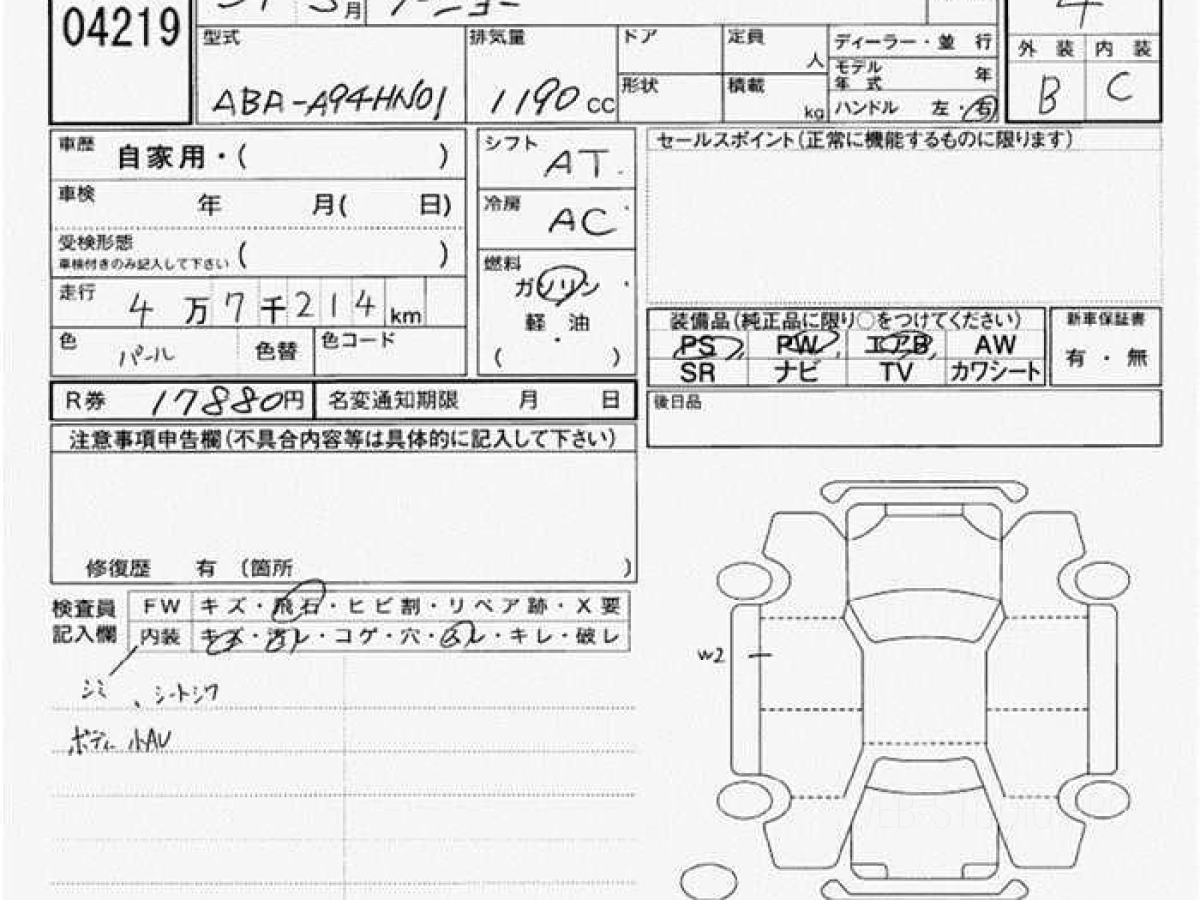 04219
月
型式 ABA-A94HN01
排気量 1190 CC
ドア
形状
定員 人
積載 kg
ディーラー・並 行
モデル年式 年
ハンドル 左・右
4
外 装 内 装
B C
車歴 自家用・( )
車検 年 月( 日)
受検形態 ( )
車検付きのみ記入して下さい
走行 4 万 7 千 2 1 4 km
色 パール 色替 色コード
シフト AT
冷房 AC
燃料
ガソリン・
軽・油
( )
セールスポイント(正常に機能するものに限ります)
装備品(純正品に限り○をつけてください)
PS PW エアB AW
SR ナビ TV カワシート
新車保証書
有・無
R券 17880円 名変通知期限 月 日
後日品
注意事項申告欄(不具合内容等は具体的に記入して下さい)
修復歴 有 (箇所 )
検査員記入欄
FW キズ・飛石・ヒビ割・リペア跡・X要
内装 キズ・汚レ・コゲ・穴・・キレ・破レ
シミ、シートシワ
ボディー小AU
W2